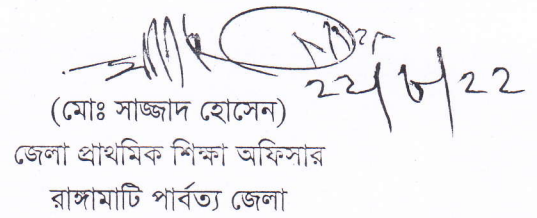 (মোঃ সাজ্জাদ হোসেন)
জেলা প্রাথমিক শিক্ষা অফিসার
রাঙ্গামাটি পার্বত্য জেলা